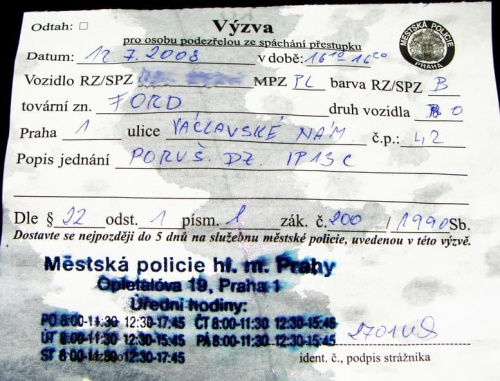 Odtah: □ Výzva
pro osobu podezřelou ze spáchání přestupku
MĚSTSKÁ POLICIE PRAHA
Datum: 12.7.2008 v době: 16¹⁰ 16²⁰
Vozidlo RZ/SPZ MPZ PL barva RZ/SPZ B
tovární zn. FORD druh vozidla O
Praha 1 ulice VÁCLAVSKÉ NÁM. č.p.: 42
Popis jednání PORUŠ. DZ. IP13C
Dle § 22 odst. 1 písm. l zák. č. 200 / 1990 Sb.
Dostavte se nejpozději do 5 dnů na služebnu městské policie, uvedenou v této výzvě.
Městská policie hl. m. Prahy
Opletalova 19, Praha 1
Úřední hodiny:
PO 8:00-11:30 12:30-17:45 ČT 8:00-11:30 12:30-15:45
ÚT 8:00-11:30 12:30-15:45 PÁ 8:00-11:30 12:30-15:45
ST 8:00-11:30 12:30-17:45
ident. č., podpis strážníka